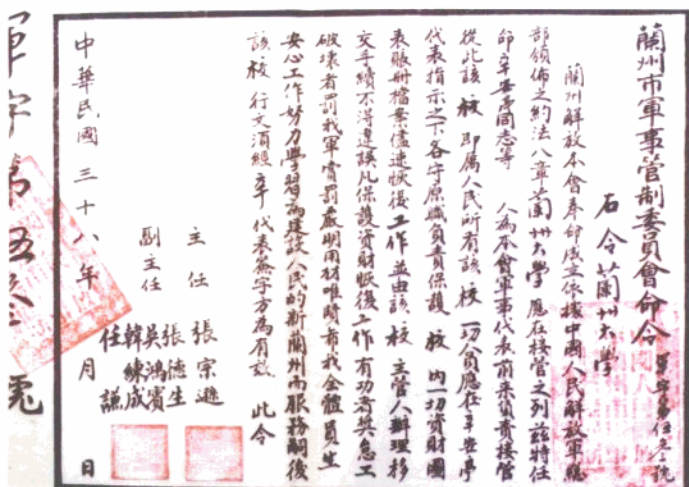 蘭州市軍事管制委員會命令
軍字第伍叁號
右令蘭州大學
蘭州解放本會奉命成立依據中國人民解放軍總
部頒佈之約法八章蘭州大學應在接管之列茲特任
命辛安亭同志等 人為本會軍事代表前来負責接管
從此該校即屬人民所有該校一切人員應在辛安亭
代表指示之下各守原職負責保護校內一切資財圖
表賬册檔案儘速恢復工作並由該校主管人辦理移
交手續不得違誤凡保護資財恢復工作有功者獎怠工
破壞者罰我軍賞罰嚴明用材唯賢希我全體員生
安心工作努力學習為建設人民的新蘭州而服務嗣後
該校行文須經辛代表簽字方為有效 此令
主任 張宗遜
副主任 張德生
吳鴻賓
韓練成
任謙
中華民國三十八年 月 日
軍字第伍叁號